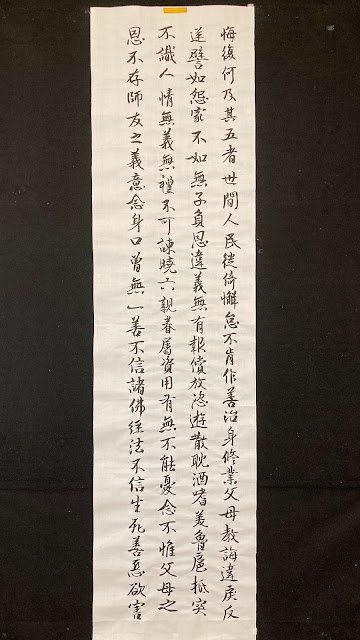 悔復何及其五者世間人民徙倚懈怠不肯作善治身修業父母教誨違戻反
逆譬如怨家不如無子負恩違義無有報償放恣遊散耽酒嗜美魯扈抵突
不識人情無義無禮不可諫曉六親眷屬資用有無不能憂念不惟父母之
恩不存師友之義意念身口曾無一善不信諸佛経法不信生死善悪欲害